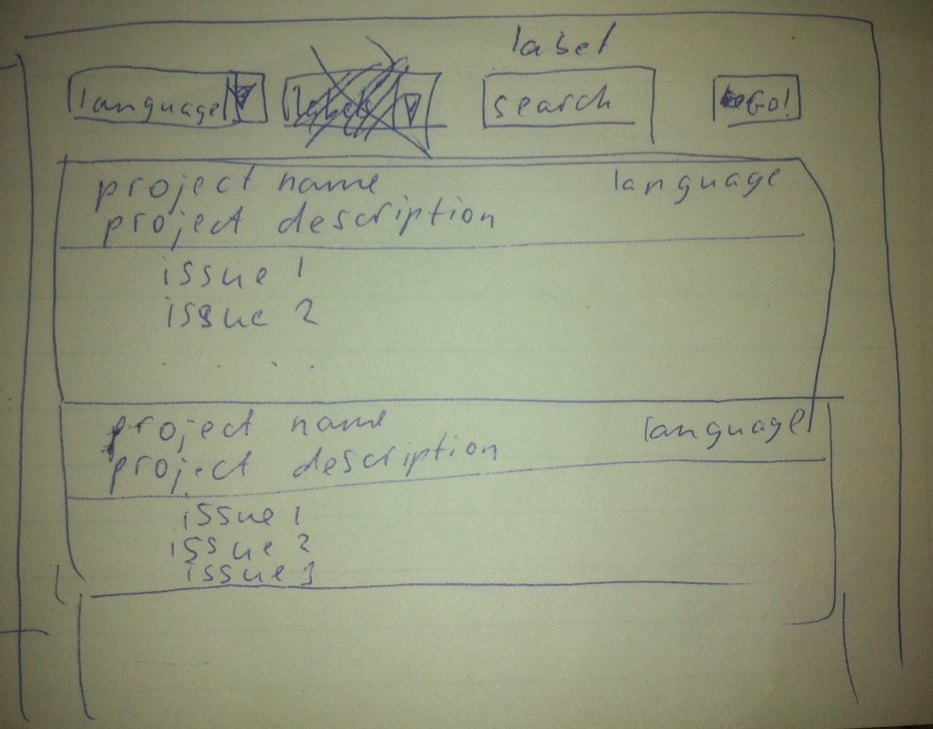 label
language search Go!
project name language
project description
issue 1
issue 2
. . . .
project name language
project description
issue 1
issue 2
issue 3